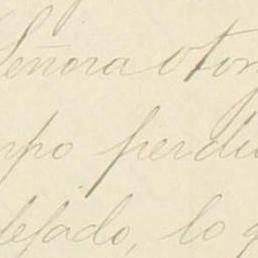 Señora otor
mpo perdi
dejado, lo q